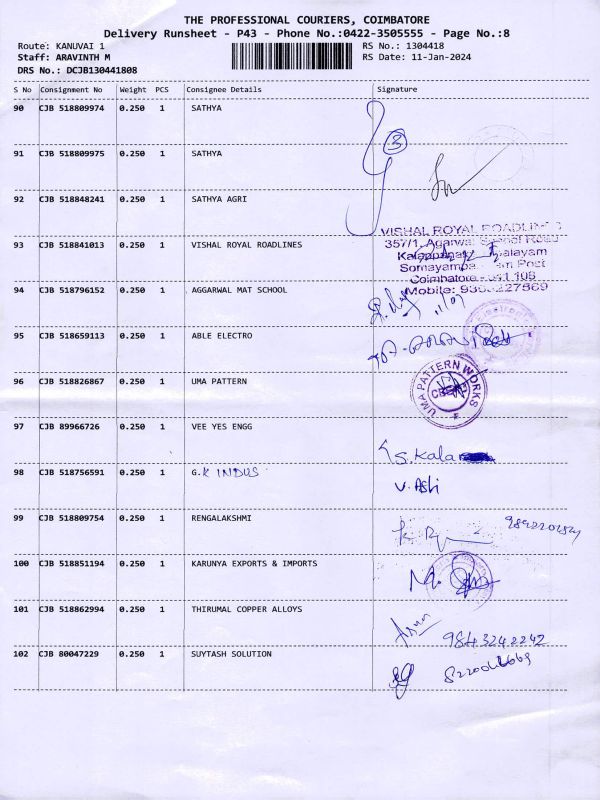 THE PROFESSIONAL COURIERS, COIMBATORE
Delivery Runsheet - P43 - Phone No.:0422-3505555 - Page No.:8
Route: KANUVAI 1 RS No.: 1304418
Staff: ARAVINTH M RS Date: 11-Jan-2024
DRS No.: DCJB130441808
S No Consignment No Weight PCS Consignee Details Signature
90 CJB 518809974 0.250 1 SATHYA
3
91 CJB 518809975 0.250 1 SATHYA
92 CJB 518848241 0.250 1 SATHYA AGRI
VISHAL ROYAL ROADLINES
93 CJB 518841013 0.250 1 VISHAL ROYAL ROADLINES 357/1, Agarwal School Road
Somayampa
Coimbatore
Mobile:
94 CJB 518796152 0.250 1 AGGARWAL MAT SCHOOL
95 CJB 518659113 0.250 1 ABLE ELECTRO
96 CJB 518826867 0.250 1 UMA PATTERN UMA PATTERN WORKS
97 CJB 89966726 0.250 1 VEE YES ENGG
S. Kala
98 CJB 518756591 0.250 1 G.K INDUS
99 CJB 518809754 0.250 1 RENGALAKSHMI
100 CJB 518851194 0.250 1 KARUNYA EXPORTS & IMPORTS
101 CJB 518862994 0.250 1 THIRUMAL COPPER ALLOYS
9843242242
102 CJB 80047229 0.250 1 SUYTASH SOLUTION